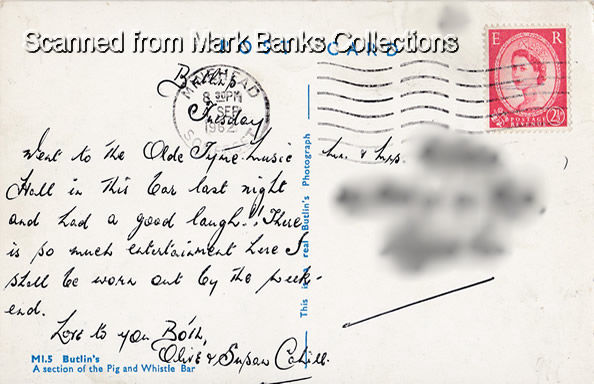 Scanned from Mark Banks Collections
POST CARD
E R
POSTAGE REVENUE
2½D
MINEHEAD
8 30PM
SEP
1962
SOMERSET
Butlins
Tuesday
Went to the Olde Tyme music
Hall in this bar last night
and had a good laugh!! There
is so much entertainment here I
shall be worn out by the week-
end.
Love to you Both,
Olive & Susan Cahill.
Mr. & Mrs.
This is a real Butlin's Photograph
M1.5 Butlin's
A section of the Pig and Whistle Bar